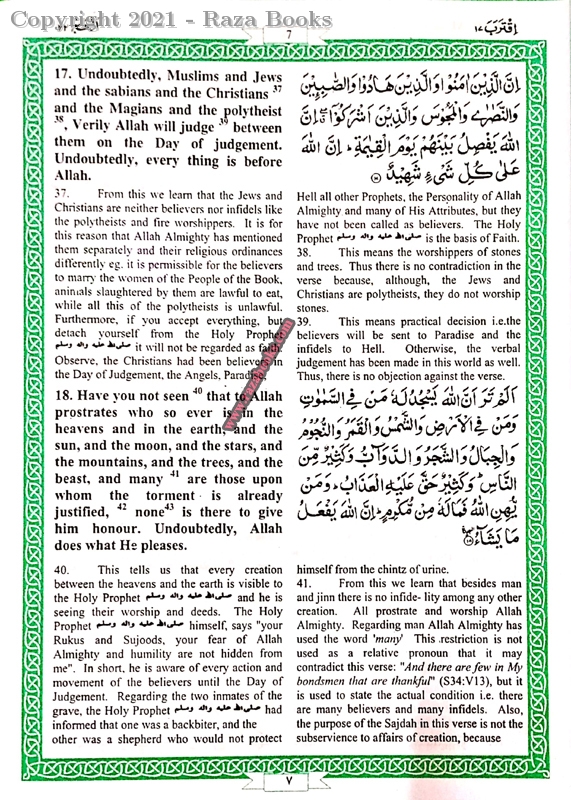 Copyright 2021 - Raza Books
اِقْتَرَبَ ١٧
7
17. Undoubtedly, Muslims and Jews
and the sabians and the Christians 37
and the Magians and the polytheist
38, Verily Allah will judge 39 between
them on the Day of judgement.
Undoubtedly, every thing is before
Allah.
اِنَّ الَّذِيْنَ اٰمَنُوْا وَالَّذِيْنَ هَادُوْا وَالصّٰبِـِٕيْنَ
وَالنَّصٰرٰى وَالْمَجُوْسَ وَالَّذِيْنَ اَشْرَكُوْۤا ۖ اِنَّ
اللّٰهَ يَفْصِلُ بَيْنَهُمْ يَوْمَ الْقِيٰمَةِ ؕ اِنَّ اللّٰهَ
عَلٰى كُلِّ شَىْءٍ شَهِيْدٌ
37. From this we learn that the Jews and
Christians are neither believers nor infidels like
the polytheists and fire worshippers. It is for
this reason that Allah Almighty has mentioned
them separately and their religious ordinances
differently eg. it is permissible for the believers
to marry the women of the People of the Book,
animals slaughtered by them are lawful to eat,
while all this of the polytheists is unlawful.
Furthermore, if you accept everything, but
detach yourself from the Holy Prophet
صلى الله عليه واله وسلم it will not be regarded as faith.
Observe, the Christians had been believers in
the Day of Judgement, the Angels, Paradise,
Hell all other Prophets, the Personality of Allah
Almighty and many of His Attributes, but they
have not been called as believers. The Holy
Prophet صلى الله عليه واله وسلم is the basis of Faith.
38. This means the worshippers of stones
and trees. Thus there is no contradiction in the
verse because, although, the Jews and
Christians are polytheists, they do not worship
stones.
39. This means practical decision i.e.the
believers will be sent to Paradise and the
infidels to Hell. Otherwise, the verbal
judgement has been made in this world as well.
Thus, there is no objection against the verse.
18. Have you not seen 40 that to Allah
prostrates who so ever is in the
heavens and in the earth, and the
sun, and the moon, and the stars, and
the mountains, and the trees, and the
beast, and many 41 are those upon
whom the torment is already
justified, 42 none43 is there to give
him honour. Undoubtedly, Allah
does what He pleases.
اَلَمْ تَرَ اَنَّ اللّٰهَ يَسْجُدُ لَهٗ مَنْ فِى السَّمٰوٰتِ
وَمَنْ فِى الْاَرْضِ وَالشَّمْسُ وَالْقَمَرُ وَالنُّجُوْمُ
وَالْجِبَالُ وَالشَّجَرُ وَالدَّوَآبُّ وَكَثِيْرٌ مِّنَ
النَّاسِ ؕ وَكَثِيْرٌ حَقَّ عَلَيْهِ الْعَذَابُ ؕ وَمَنْ
يُّهِنِ اللّٰهُ فَمَا لَهٗ مِنْ مُّكْرِمٍ ؕ اِنَّ اللّٰهَ يَفْعَلُ
مَا يَشَآءُ
40. This tells us that every creation
between the heavens and the earth is visible to
the Holy Prophet صلى الله عليه واله وسلم and he is
seeing their worship and deeds. The Holy
Prophet صلى الله عليه واله وسلم himself, says "your
Rukus and Sujoods, your fear of Allah
Almighty and humility are not hidden from
me". In short, he is aware of every action and
movement of the believers until the Day of
Judgement. Regarding the two inmates of the
grave, the Holy Prophet صلى الله عليه واله وسلم had
informed that one was a backbiter, and the
other was a shepherd who would not protect
himself from the chintz of urine.
41. From this we learn that besides man
and jinn there is no infide- lity among any other
creation. All prostrate and worship Allah
Almighty. Regarding man Allah Almighty has
used the word 'many' This restriction is not
used as a relative pronoun that it may
contradict this verse: "And there are few in My
bondsmen that are thankful" (S34:V13), but it
is used to state the actual condition i.e. there
are many believers and many infidels. Also,
the purpose of the Sajdah in this verse is not the
subservience to affairs of creation, because
٧